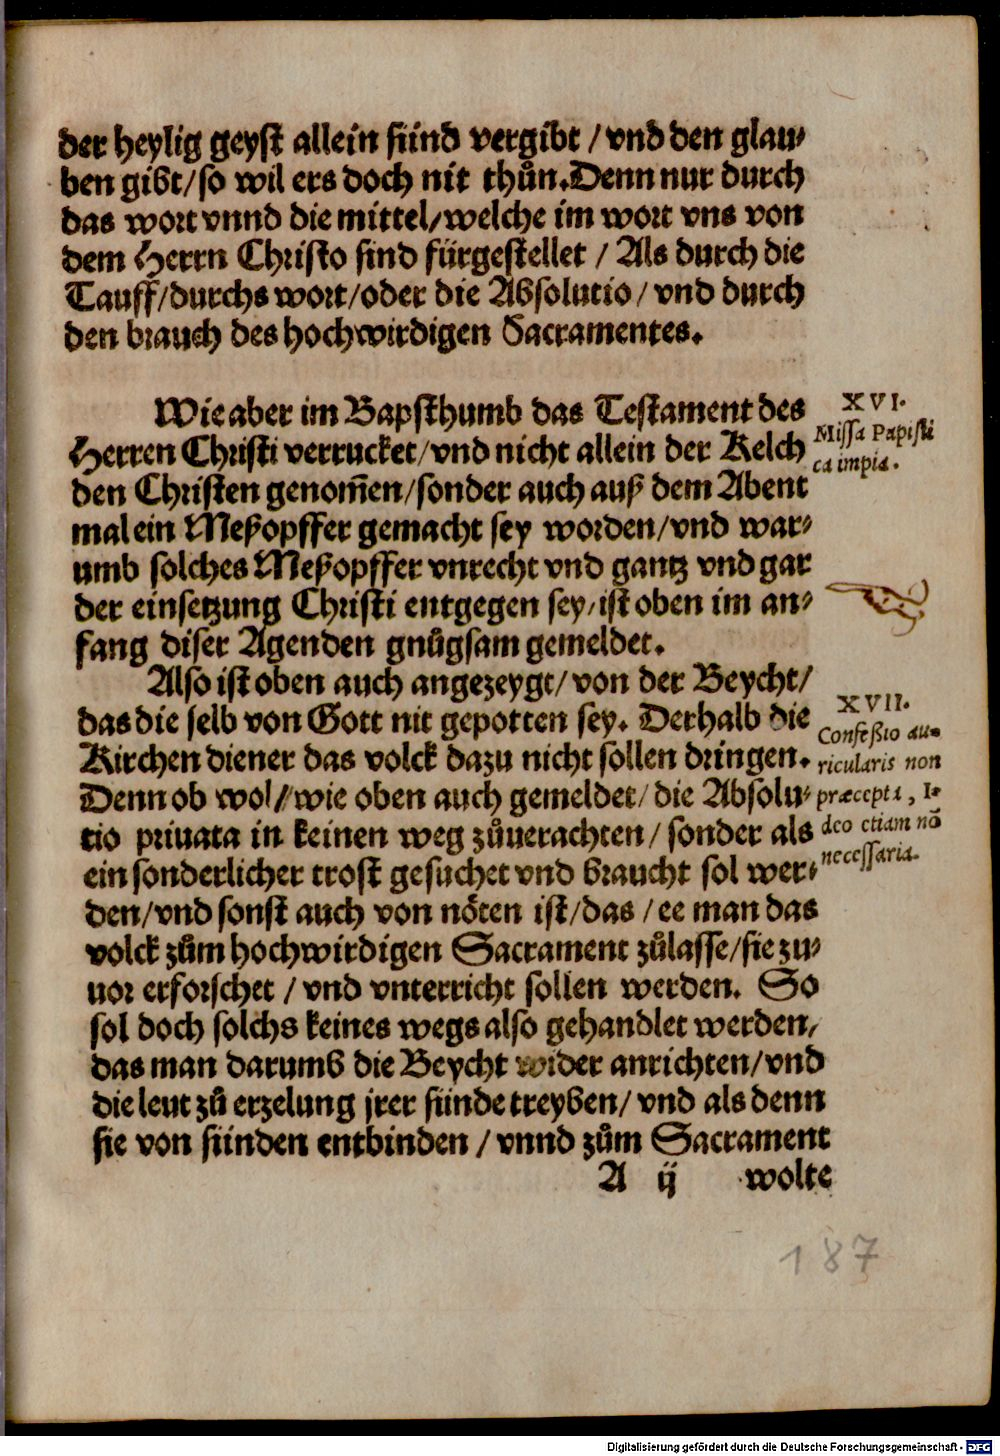 der heylig geyst allein sünd vergibt / vnd den glau-
ben gibt/ so wil ers doch nit thůn. Denn nur durch
das wort vnnd die mittel/ welche im wort vns von
dem Herrn Christo sind fürgestellet / Als durch die
Tauff/ durchs wort/ oder die Absolutio/ vnd durch
den brauch des hochwirdigen Sacramentes.
Wie aber im Bapsthumb das Testament des
Herren Christi verrucket/ vnd nicht allein der Kelch
den Christen genom̃en/ sonder auch auß dem Abent
mal ein Meßopffer gemacht sey worden/ vnd war-
umb solches Meßopffer vnrecht vnd gantz vnd gar
der einsetzung Christi entgegen sey/ ist oben im an-
fang diser Agenden gnůgsam gemeldet.
XVI.
Missa Papisti
ca impia.
Also ist oben auch angezeygt/ von der Beycht/
das die selb von Gott nit gepotten sey. Derhalb die
Kirchen diener das volck dazu nicht sollen dringen.
Denn ob wol// wie oben auch gemeldet/ die Absolu-
tio priuata in keinen weg zůuerachten/ sonder als
ein sonderlicher trost gesuchet vnd braucht sol wer-
den/ vnd sonst auch von nöten ist/ das / ee man das
volck zům hochwirdigen Sacrament zůlasse/ sie zu-
uor erforschet / vnd vnterricht sollen werden. So
sol doch solchs keines wegs also gehandlet werden/
das man darumb die Beycht wider anrichten/ vnd
die leut zů erzelung jrer sünde treyben/ vnd als denn
sie von sünden entbinden / vnnd zům Sacrament
XVII.
Confeßio au-
ricularis non
præcepta, I-
deo etiam nō
necessaria.
A ij wolte
187
Digitalisierung gefördert durch die Deutsche Forschungsgemeinschaft - DFG